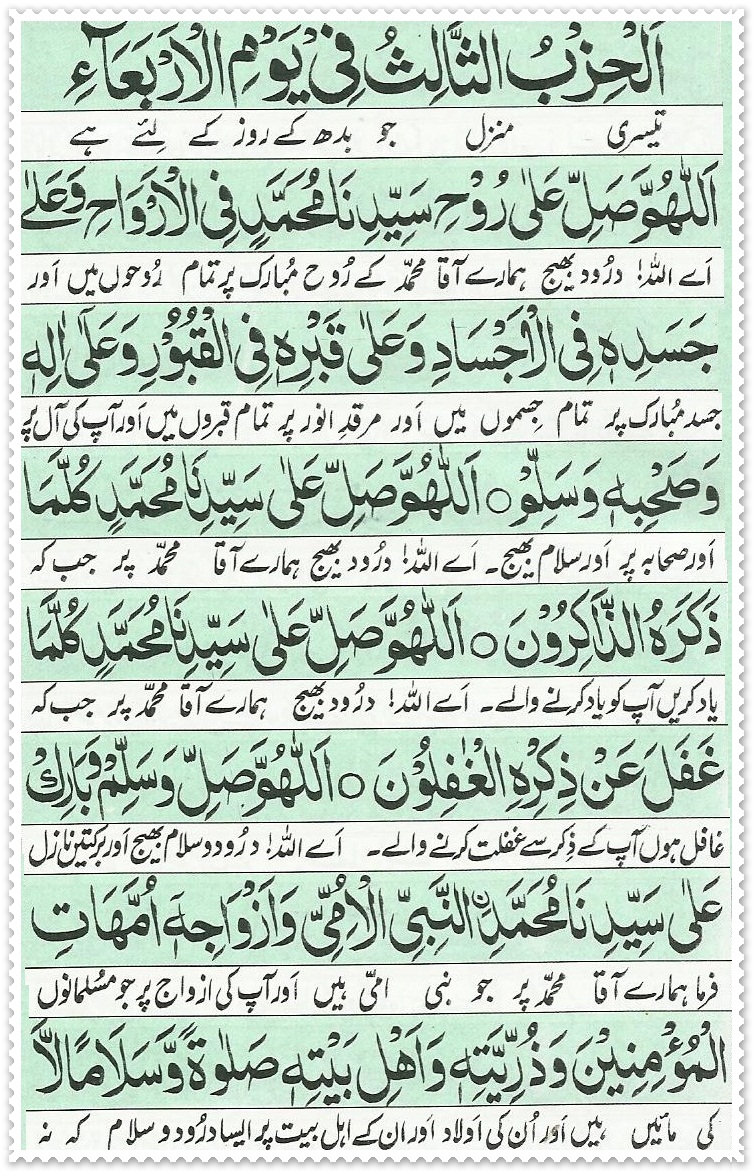 اَلْحِزْبُ الثَّالِثُ فِیْ یَوْمِ الْاَرْبَعَآءِ
تیسری منزل جو بدھ کے روز کے لئے ہے
اَللّٰهُمَّ صَلِّ عَلٰی رُوْحِ سَیِّدِنَا مُحَمَّدٍ فِی الْاَرْوَاحِ وَعَلٰی
اَے اللہ! درُود بھیج ہمارے آقا محمدؐ کے رُوح مُبارک پر تمام رُوحوں میں اَور
جَسَدِهٖ فِی الْاَجْسَادِ وَعَلٰی قَبْرِهٖ فِی الْقُبُوْرِ وَعَلٰٓی اٰلِهٖ
جسد مُبارک پر تمام جِسموں میں اَور مرقدِ انور پر تمام قبروں میں اَور آپ کی آل پر
وَصَحْبِهٖ وَسَلِّمْ ○ اَللّٰهُمَّ صَلِّ عَلٰی سَیِّدِنَا مُحَمَّدٍ کُلَّمَا
اَور صحابہ پر اَور سلام بھیج۔ اَے اللہ! درُود بھیج ہمارے آقا محمدؐ پر جب کہ
ذَکَرَهُ الذَّاکِرُوْنَ ○ اَللّٰهُمَّ صَلِّ عَلٰی سَیِّدِنَا مُحَمَّدٍ کُلَّمَا
یاد کریں آپ کو یاد کرنے والے۔ اَے اللہ! درُود بھیج ہمارے آقا محمدؐ پر جب کہ
غَفَلَ عَنْ ذِکْرِهِ الْغٰفِلُوْنَ ○ اَللّٰهُمَّ صَلِّ وَسَلِّمْ وَبَارِكْ
غافل ہوں آپ کے ذِکر سے غفلت کرنے والے۔ اَے اللہ! درُود و سلام بھیج اَور برکتیں نازل
عَلٰی سَیِّدِنَا مُحَمَّدِ نِ النَّبِیِّ الْاُمِّیِّ وَاَزْوَاجِهٖٓ اُمَّهَاتِ
فرما ہمارے آقا محمدؐ پر جو نبی امیّ ہیں اَور آپ کی ازواج پر جو مسُلمانوں
الْمُؤْمِنِیْنَ وَذُرِّیَّتِهٖ وَاَهْلِ بَیْتِهٖ صَلٰوةً وَّسَلَامًا لَّا
کی مائیں ہیں اَور اُن کی اَولاد اَور ان کے اہل بیت پر ایسا درُود و سلام کہ نہ